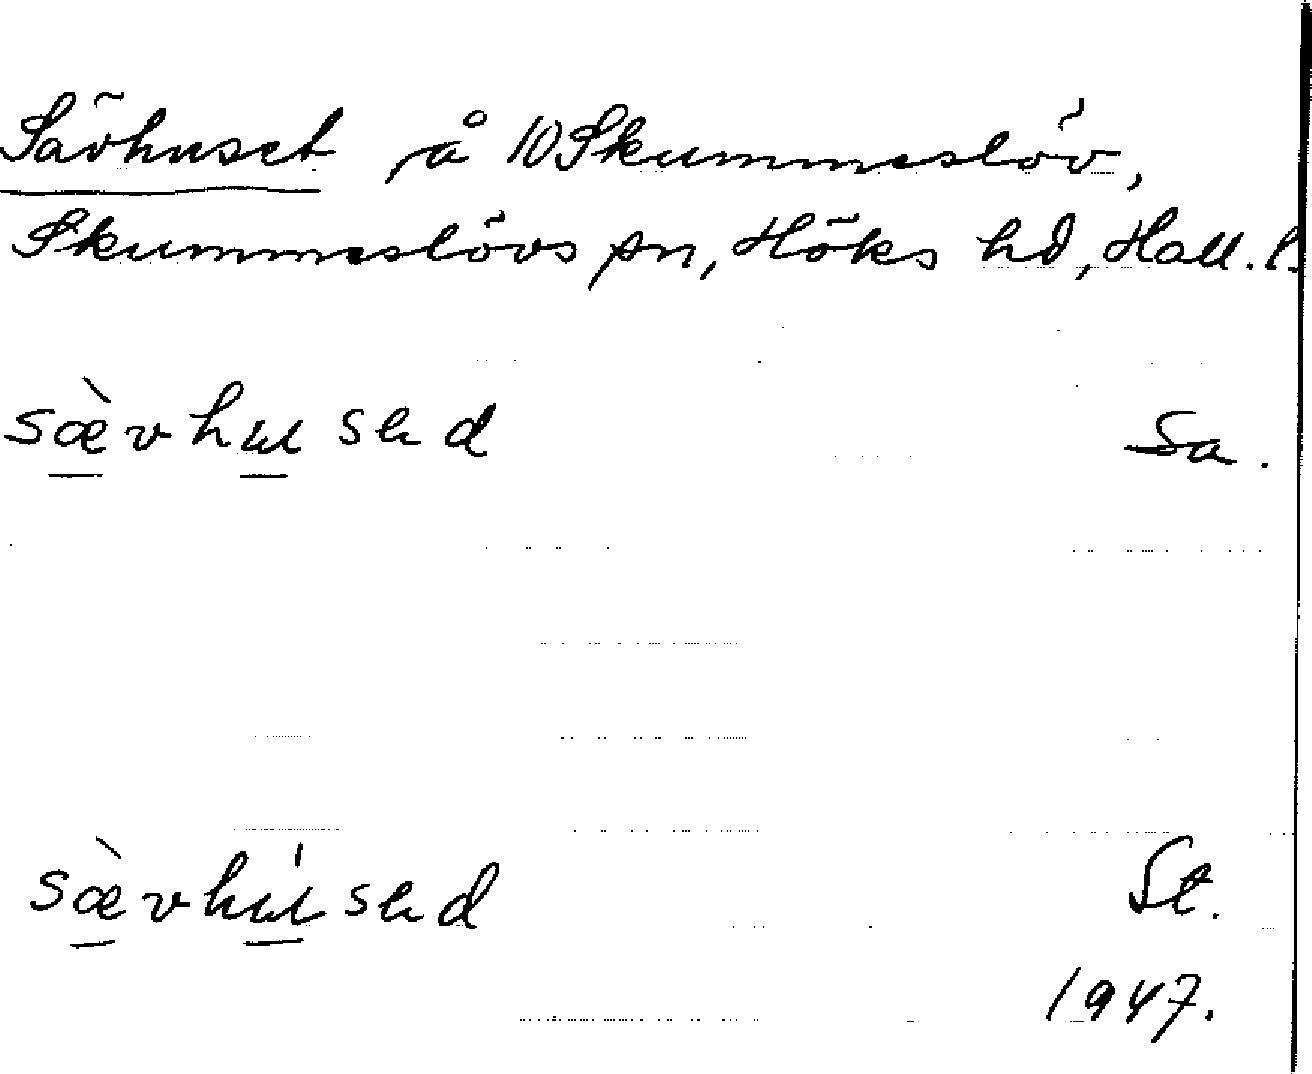 Sävhuset å 10 Skummeslöv,
Skummeslövs sn, Höks hd, Hall. l.
sæ̀vhusəd Sa.
sæ̀vhúsəd St.
1947.